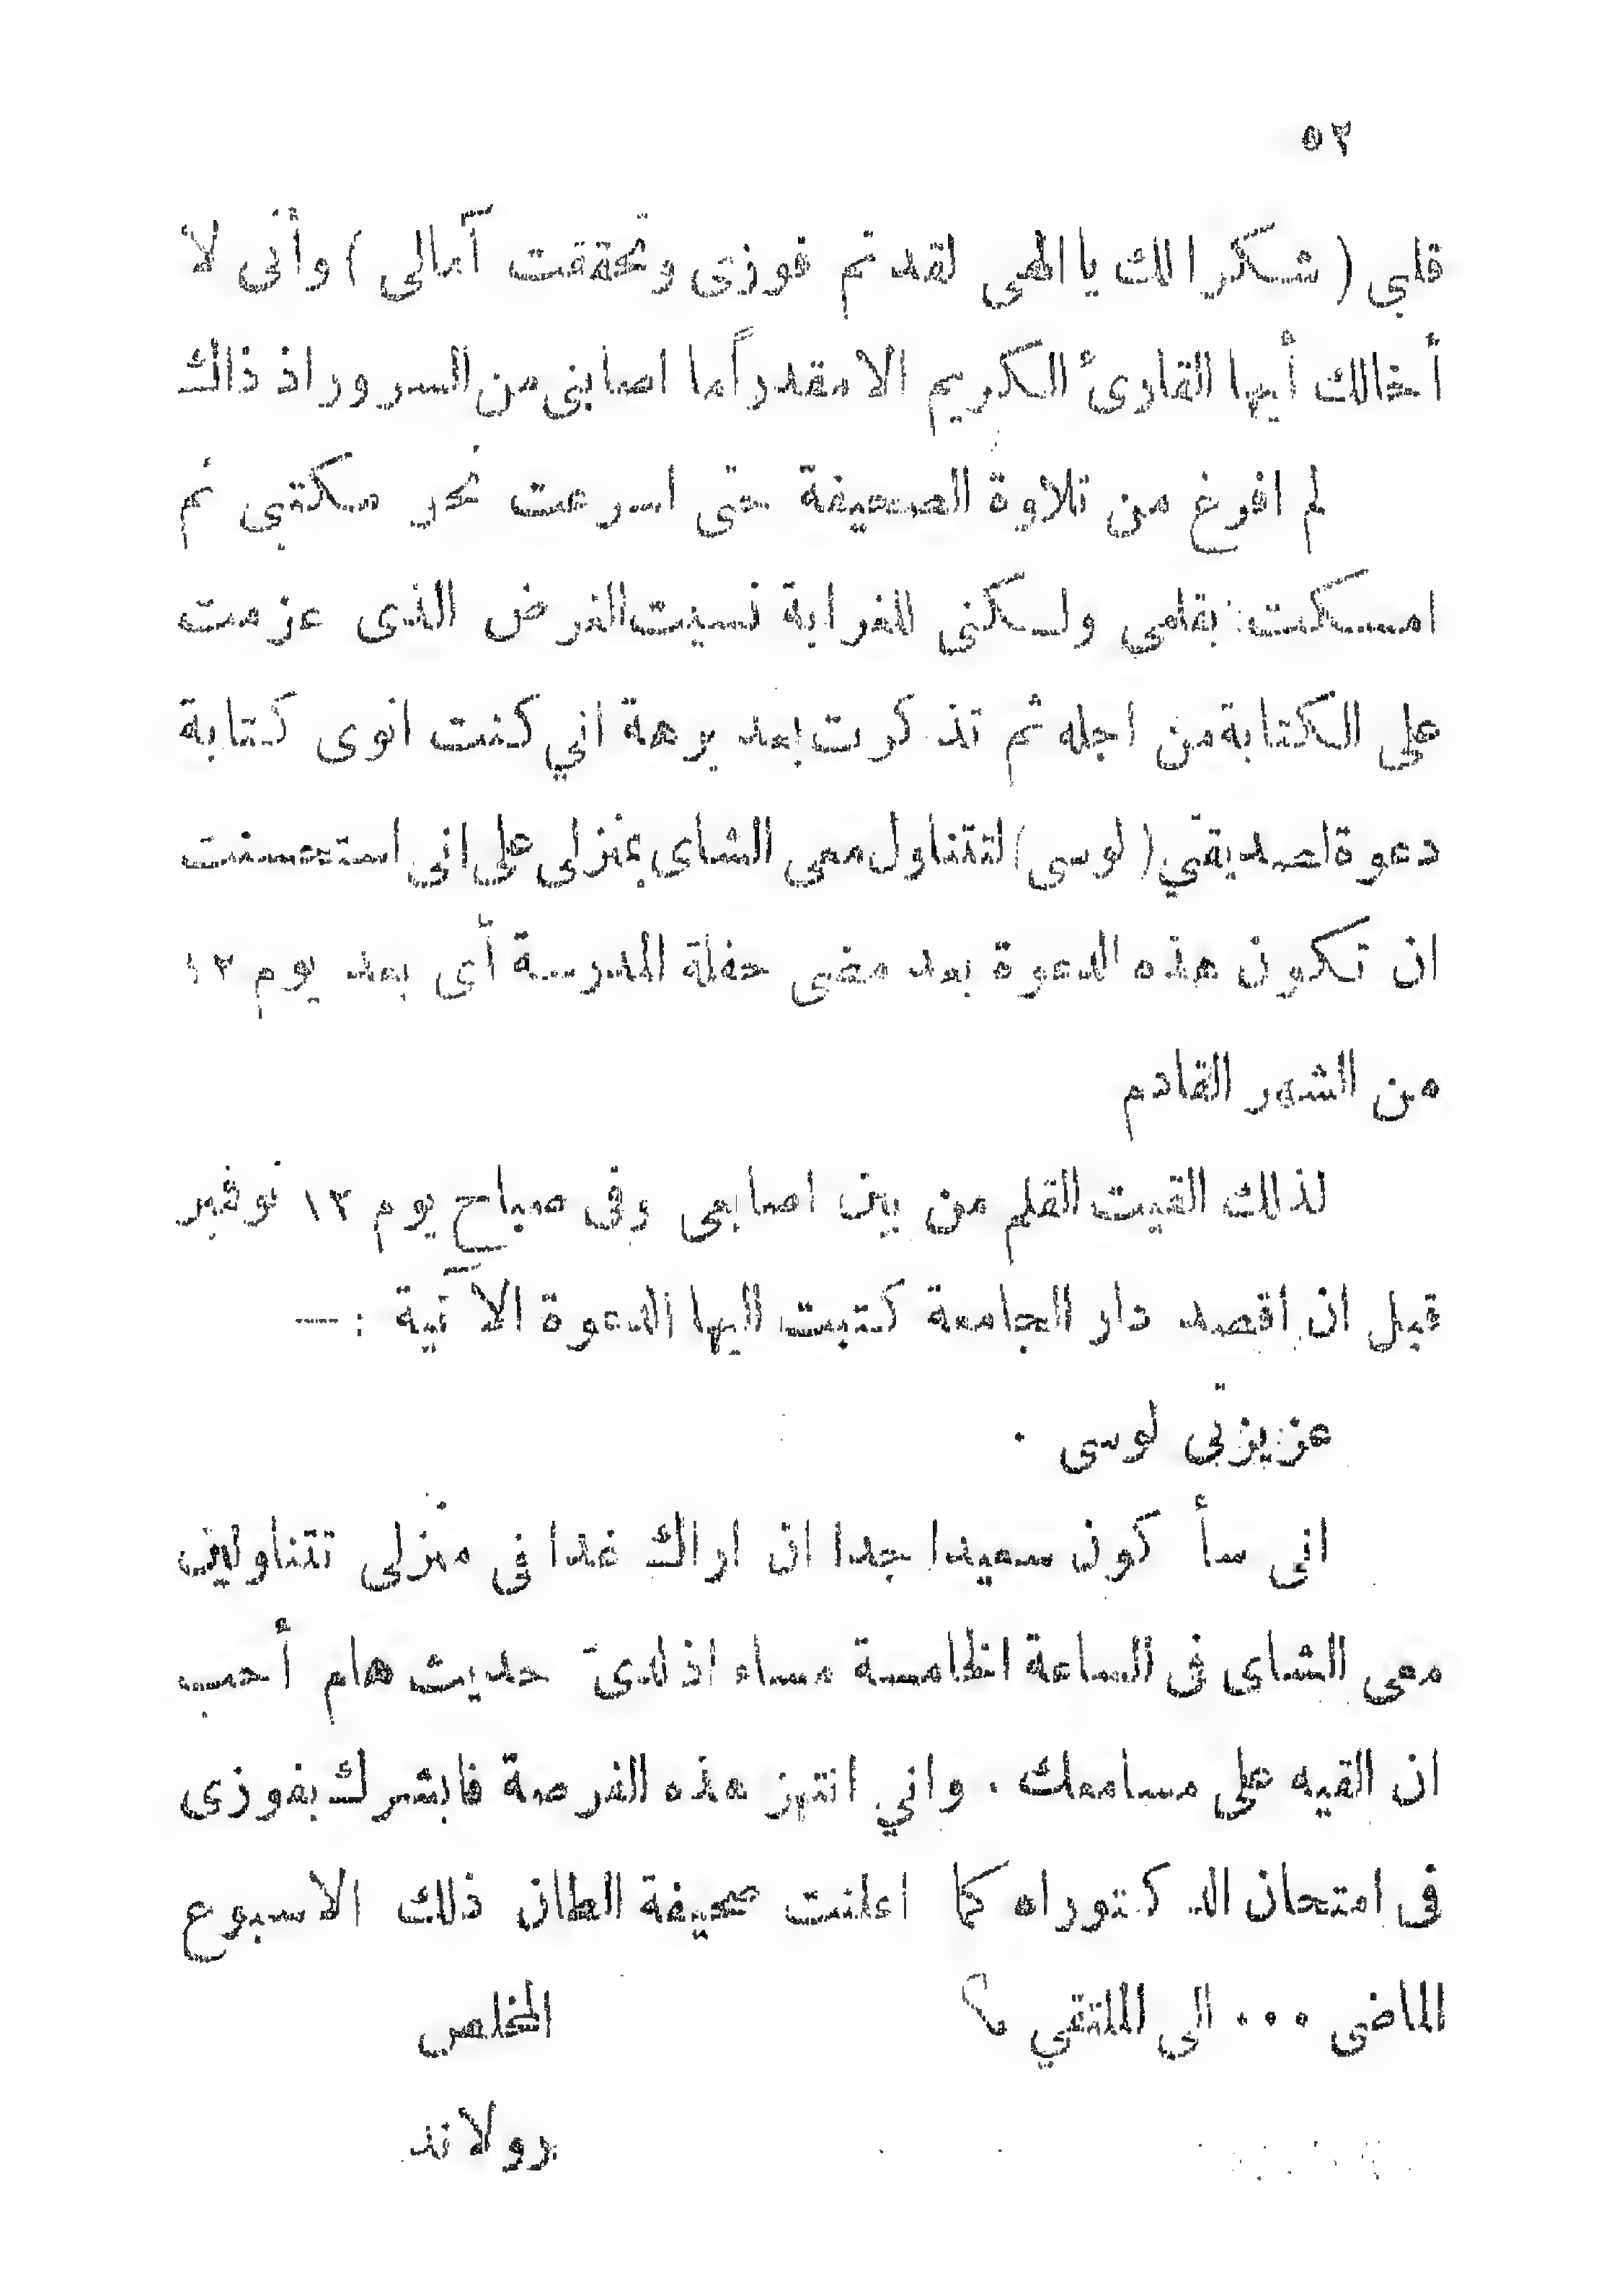 ٥٢
قلبى ( شكرا لك يا الهى لقد تم فوزى وتحققت آمالى ) وأنى لا
أخالك أيها القارئ الكريم الا مقدراً ما اصابنى من السرور اذ ذاك
لم افرغ من تلاوة الصحيفة حتى اسرعت نحو مكتبى ثم
امسكت بقلمى ولكنى للغرابة نسيت الغرض الذى عزمت
على الكتابة من اجله ثم تذكرت بعد برهة اني كنت انوى كتابة
دعوة لصديقتي ( لوسى ) لتتناول معى الشاى بمنزلى على انى استحسنت
ان تكون هذه الدعوة بعد مضى حفلة المدرسة أى بعد يوم ١٢
من الشهر القادم
لذلك القيت القلم من بين اصابعى وفى صباح يوم ١٢ نوفمبر
قبل ان اقصد دار الجامعة كتبت اليها الدعوة الآتية : —
عزيزتى لوسى .
انى سأكون سعيدا جدا ان اراك غدا فى منزلى تتناولين
معى الشاى فى الساعة الخامسة مساء اذ لدىّ حديث هام أحب
ان القيه على مسامعك . واني انتهز هذه الفرصة فابشرك بفوزى
فى امتحان الدكتوراه كما اعلنت صحيفة الطان ذلك الاسبوع
الماضى ... الى الملتقي ؟ المخلص
رولاند